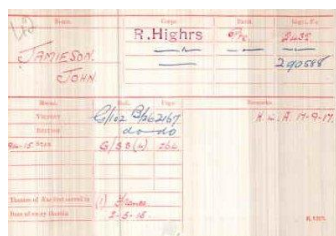 Name. Corps. Rank. Regtl. No.
R. Highrs Pte 2435
JAMIESON. 290568
JOHN
Medal. Roll. Page. Remarks.
VICTORY G/102 B/262167 K. in A. 17-9-17.
BRITISH do do
1914-15 STAR G/5 B(4) 266
Theatre of War first served in (1) France
Date of entry therein 2-5-15